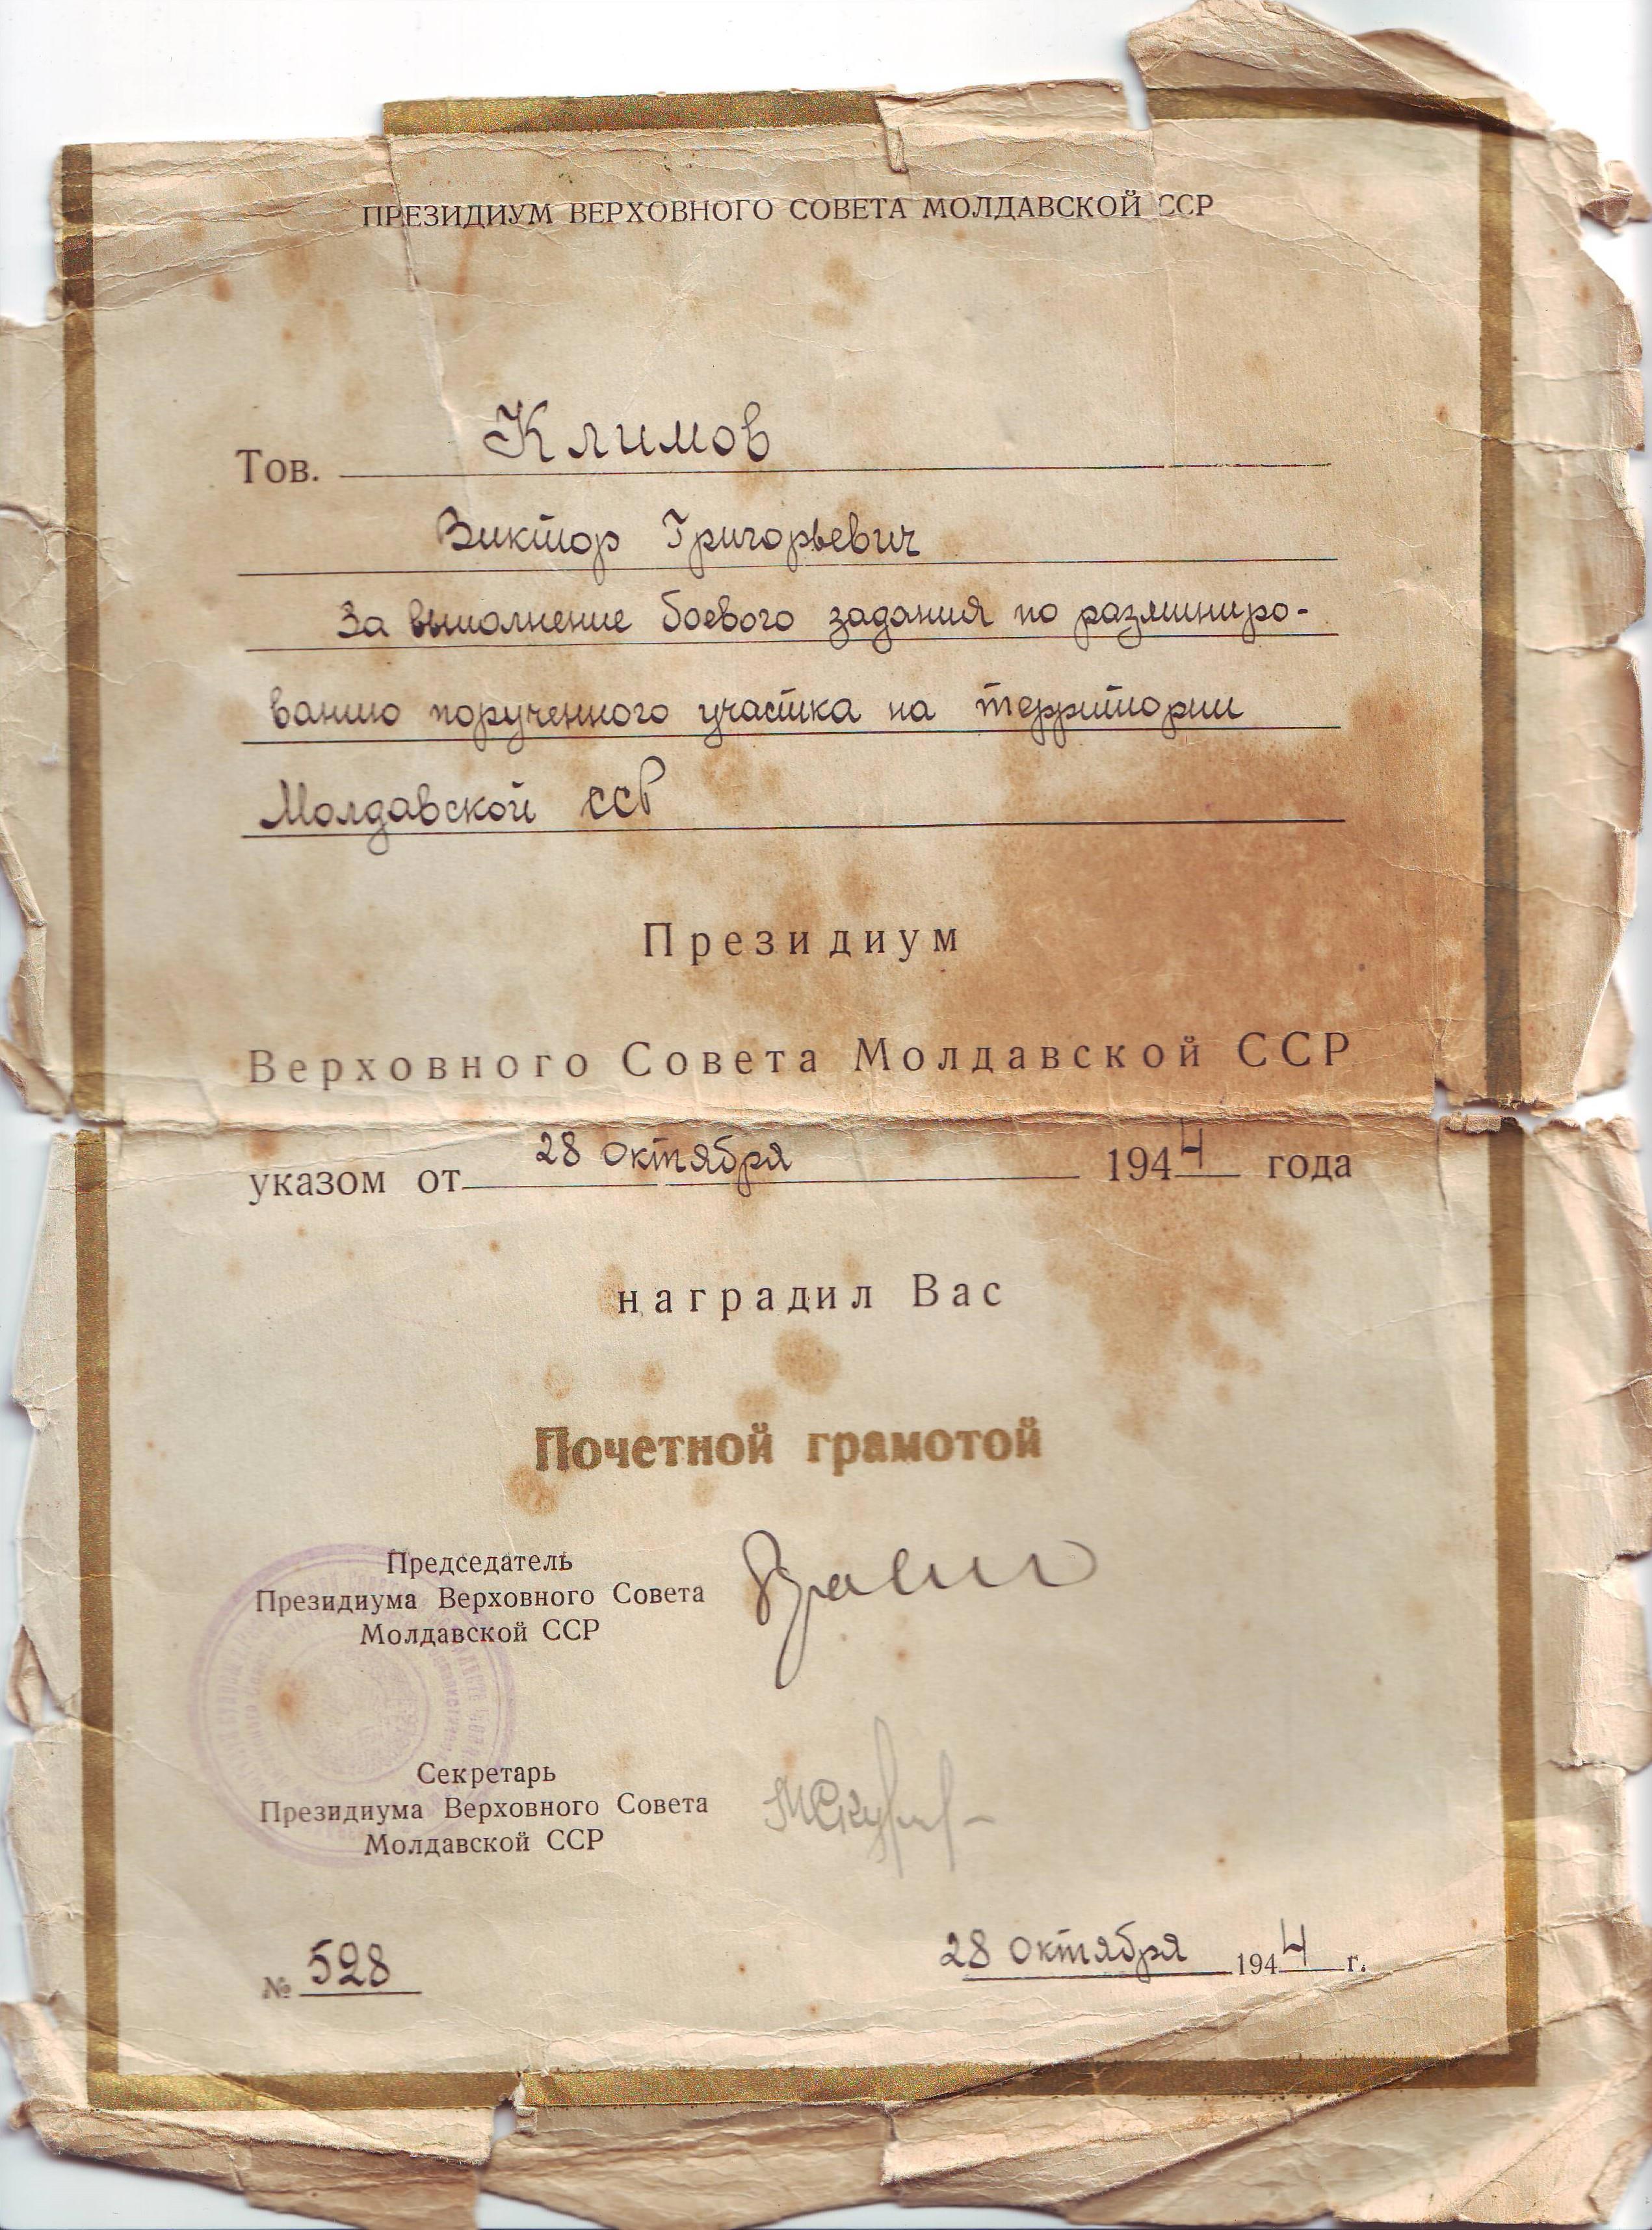 ПРЕЗИДИУМ ВЕРХОВНОГО СОВЕТА МОЛДАВСКОЙ ССР
Тов. Климов
Виктор Григорьевич
За выполнение боевого задания по разминиро-
ванию порученного участка на территории
Молдавской ССР
Президиум
Верховного Совета Молдавской ССР
указом от 28 октября 1944 года
наградил Вас
Почетной грамотой
Председатель
Президиума Верховного Совета
Молдавской ССР
Секретарь
Президиума Верховного Совета
Молдавской ССР
№ 528
28 октября 1944 г.